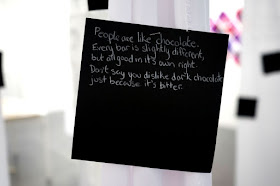 People are like chocolate.
Every bar is slightly different,
but all good in it's own right.
Don't say you dislike dark chocolate
just because it's bitter.